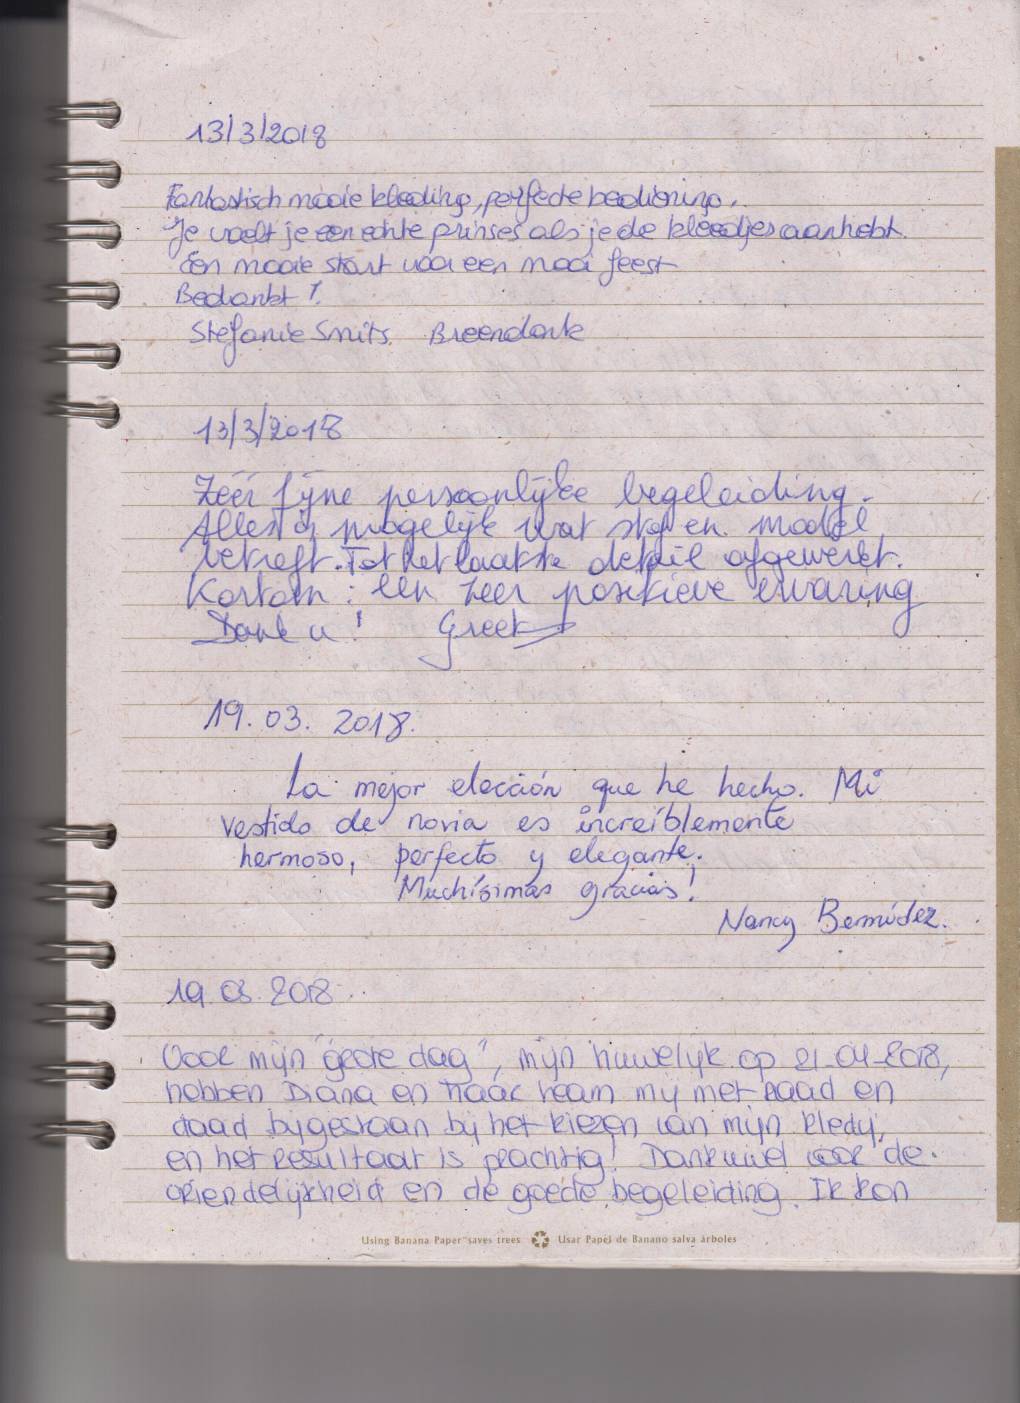 13/3/2018
Fantastisch mooie kleding, perfecte bediening.
Je voelt je een echte prinses als je de kleedjes aanhebt.
Een mooie start voor een mooi feest
Bedankt!
Stefanie Smits Breendonk
13/3/2018
Zéér fijne persoonlijke begeleiding.
Alles is mogelijk wat stof en model
betreft. Tot het laatste detail afgewerkt.
Kortom: een zeer positieve ervaring
Dank u! Greet
19.03.2018.
La mejor elección que he hecho. Mi
vestido de novia es increíblemente
hermoso, perfecto y elegante.
Muchísimas gracias!
Nancy Bermúdez.
19.03.2018
Voor mijn "grote dag", mijn huwelijk op 21-04-2018,
hebben Diana en haar team mij met raad en
daad bijgestaan bij het kiezen van mijn kledij,
en het resultaat is prachtig! Dankuwel voor de
vriendelijkheid en de goede begeleiding. Ik kon
Using Banana Paper saves trees Usar Papel de Banano salva árboles